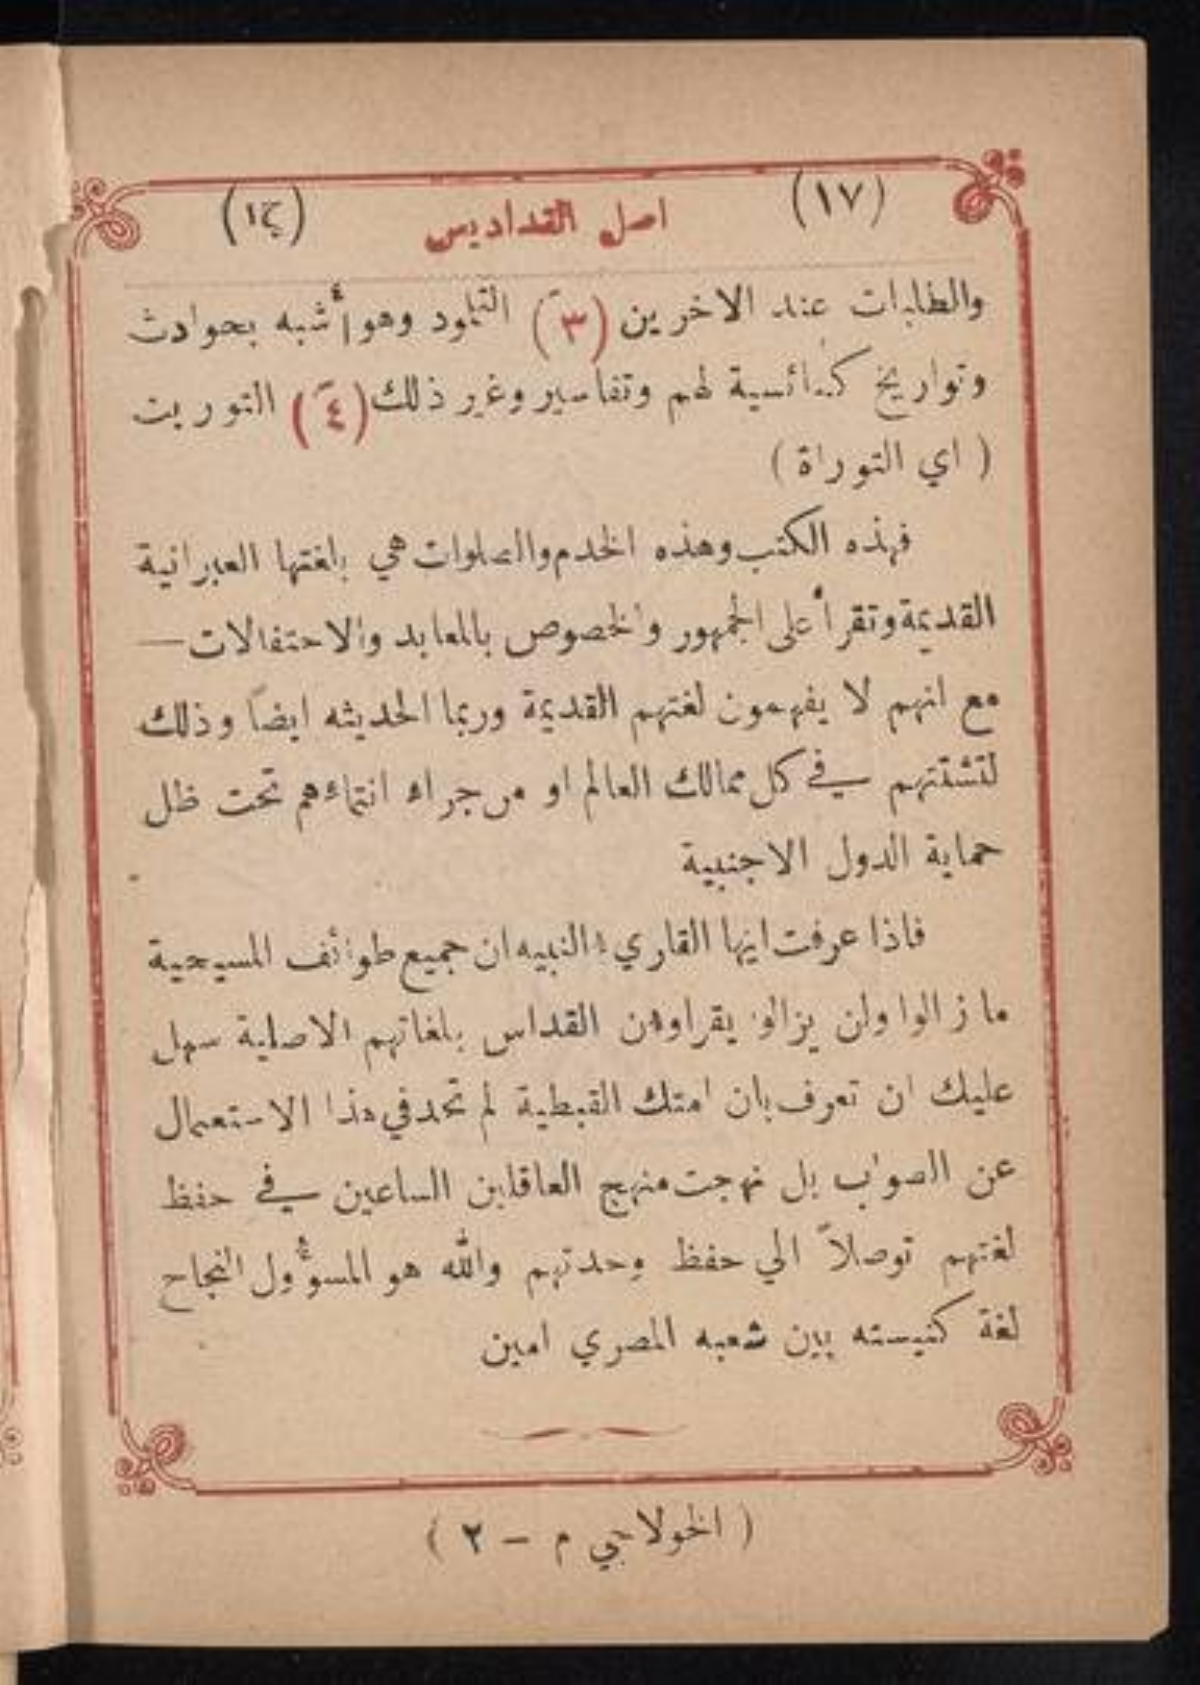 (١٧) اصل القداديس (ⲓⲍ)
والطلبات عند الاخرين (٣) التلمود وهو أشبه بحوادث
وتواريخ كنائسية لهم وتفاسير وغير ذلك (٤) التوريت
( اي التوراة )
فهذه الكتب وهذه الخدم والصلوات هي بلغتها العبرانية
القديمة وتقرأ على الجمهور والخصوص بالمعابد والاحتفالات —
مع انهم لا يفهمون لغتهم القديمة وربما الحديثه ايضاً وذلك
لتشتتهم في كل ممالك العالم او من جراء انتماءهم تحت ظل
حماية الدول الاجنبية
فاذا عرفت ايها القاريء النبيه ان جميع طوائف المسيحية
ما زالوا ولن يزالو يقراون القداس بلغاتهم الاصلية سهل
عليك ان تعرف بان امتك القبطية لم تحد في هذا الاستعمال
عن الصواب بل نهجت منهج العاقلين الساعين في حفظ
لغتهم توصلاً الي حفظ وحدتهم والله هو المسوٴول النجاح
لغة كنيسته بين شعبه المصري امين
( الخولاجي م — ٢ )